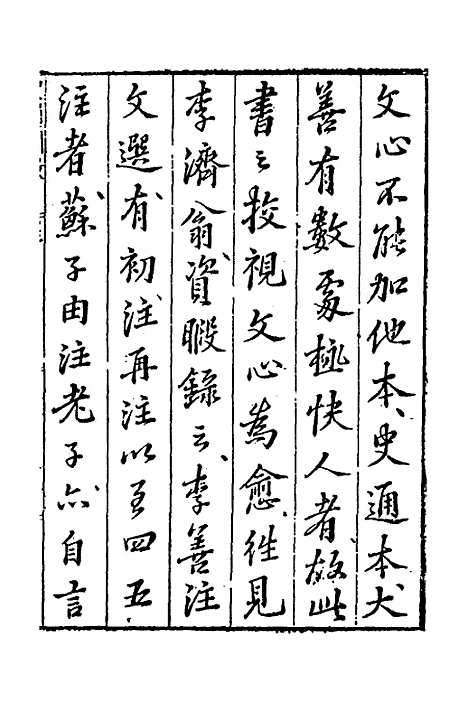 文心不能加他本、史通本大
善有數處極快人者、故此
書之挍視文心爲愈、往見
李濟翁資暇錄云、李善注
文選、有初注再注以至四五
注者、蘇子由注老子、亦自言